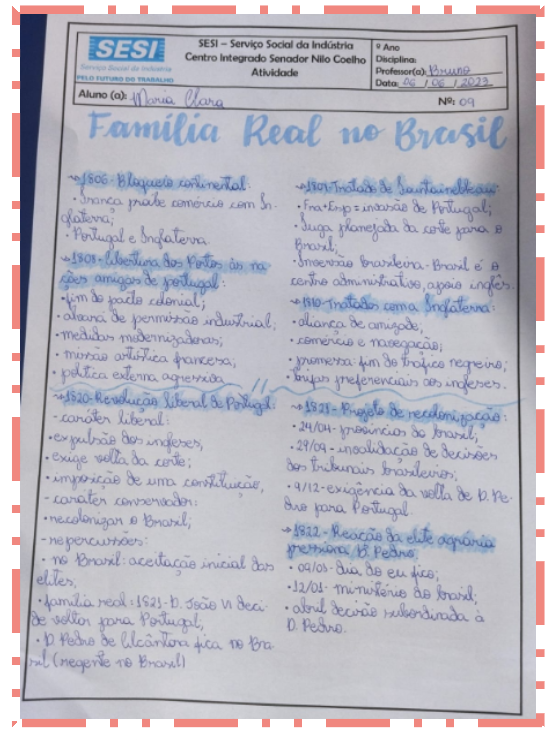 SESI
Serviço Social da Indústria
PELO FUTURO DO TRABALHO
SESI – Serviço Social da Indústria
Centro Integrado Senador Nilo Coelho
Atividade
º Ano
Disciplina:
Professor(a): Bruno
Data: 06 / 06 / 2023
Aluno (a): Maria Clara
Nº: 09
Família Real no Brasil
→1806-Bloqueio continental:
• França proíbe comércio com In-
glaterra;
• Portugal e Inglaterra.
→1808-Abertura dos Portos às na
ções amigas de portugal:
• fim do pacto colonial;
• alvará de permissão industrial;
• medidas modernizadoras;
• missão artística francesa;
• política externa agressida
→1820-Revolução liberal de Portugal:
- caráter liberal:
• expulsão dos ingleses,
• exige volta da corte;
• imposição de uma constituição,
- caráter conservador:
• recolonizar o Brasil;
- repercussões:
• no Brasil: aceitação inicial das
elites,
• família real: 1821-D. João VI deci-
de voltar para Portugal;
• D Pedro de Alcântara fica no Bra
sil (regente no Brasil)
→1807-Tratado de Fountainebleau:
• Fra+Esp = invasão de Portugal;
• Fuga planejada da corte para o
Brasil;
• Inversão brasileira-Brasil é o
centro administrativo, apoio inglês.
→1810-Tratados com a Inglaterra:
• aliança de amizade;
• comércio e navegação;
• promessa: fim do tráfico negreiro;
• tarifas preferenciais aos ingleses.
→1821- Projeto de recolonização:
• 24/04-províncias do brasil;
• 29/09-invalidação de decisões
dos tribunais brasileiros;
• 9/12-exigência da volta de D. Pe-
dro para Portugal.
→1822-Reação da elite agrária
pressiona D. Pedro:
• 09/01-dia do eu fico;
• 12/01- ministério do brasil;
• abril decisão subordinada à
D. Pedro.